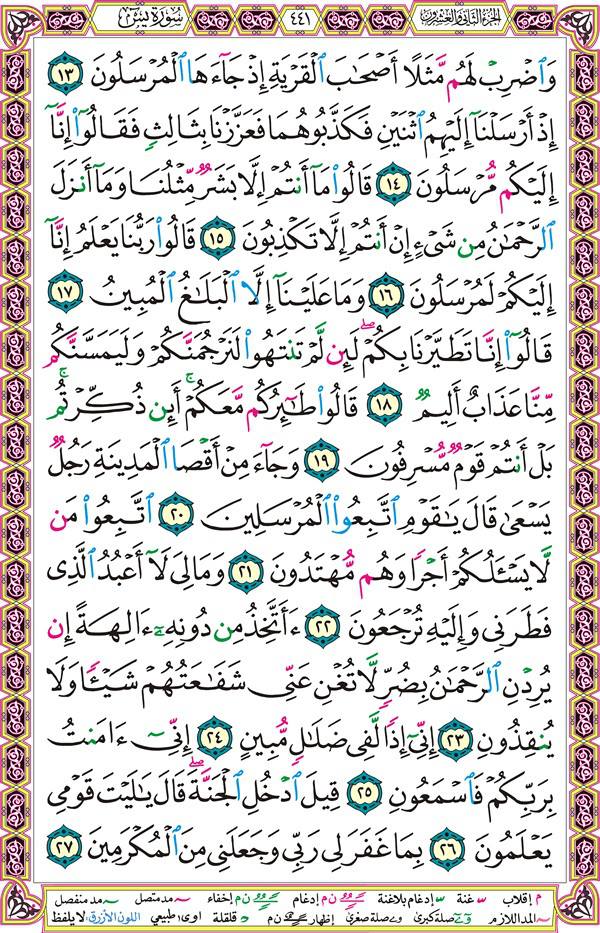 سورة يس ٤٤١ الجزء الثاني والعشرون
وَٱضْرِبْ لَهُم مَّثَلًا أَصْحَٰبَ ٱلْقَرْيَةِ إِذْ جَآءَهَا ٱلْمُرْسَلُونَ ١٣
إِذْ أَرْسَلْنَآ إِلَيْهِمُ ٱثْنَيْنِ فَكَذَّبُوهُمَا فَعَزَّزْنَا بِثَالِثٍ فَقَالُوٓا۟ إِنَّآ
إِلَيْكُم مُّرْسَلُونَ ١٤ قَالُوا۟ مَآ أَنتُمْ إِلَّا بَشَرٌ مِّثْلُنَا وَمَآ أَنزَلَ
ٱلرَّحْمَٰنُ مِن شَىْءٍ إِنْ أَنتُمْ إِلَّا تَكْذِبُونَ ١٥ قَالُوا۟ رَبُّنَا يَعْلَمُ إِنَّآ
إِلَيْكُمْ لَمُرْسَلُونَ ١٦ وَمَا عَلَيْنَآ إِلَّا ٱلْبَلَٰغُ ٱلْمُبِينُ ١٧
قَالُوٓا۟ إِنَّا تَطَيَّرْنَا بِكُمْ ۖ لَئِن لَّمْ تَنتَهُوا۟ لَنَرْجُمَنَّكُمْ وَلَيَمَسَّنَّكُم
مِّنَّا عَذَابٌ أَلِيمٌ ١٨ قَالُوا۟ طَٰٓئِرُكُم مَّعَكُمْ ۚ أَئِن ذُكِّرْتُم ۚ
بَلْ أَنتُمْ قَوْمٌ مُّسْرِفُونَ ١٩ وَجَآءَ مِنْ أَقْصَا ٱلْمَدِينَةِ رَجُلٌ
يَسْعَىٰ قَالَ يَٰقَوْمِ ٱتَّبِعُوا۟ ٱلْمُرْسَلِينَ ٢٠ ٱتَّبِعُوا۟ مَن
لَّا يَسْـَٔلُكُمْ أَجْرًا وَهُم مُّهْتَدُونَ ٢١ وَمَا لِىَ لَآ أَعْبُدُ ٱلَّذِى
فَطَرَنِى وَإِلَيْهِ تُرْجَعُونَ ٢٢ ءَأَتَّخِذُ مِن دُونِهِۦٓ ءَالِهَةً إِن
يُرِدْنِ ٱلرَّحْمَٰنُ بِضُرٍّ لَّا تُغْنِ عَنِّى شَفَٰعَتُهُمْ شَيْـًٔا وَلَا
يُنقِذُونِ ٢٣ إِنِّىٓ إِذًا لَّفِى ضَلَٰلٍ مُّبِينٍ ٢٤ إِنِّىٓ ءَامَنتُ
بِرَبِّكُمْ فَٱسْمَعُونِ ٢٥ قِيلَ ٱدْخُلِ ٱلْجَنَّةَ ۖ قَالَ يَٰلَيْتَ قَوْمِى
يَعْلَمُونَ ٢٦ بِمَا غَفَرَ لِى رَبِّى وَجَعَلَنِى مِنَ ٱلْمُكْرَمِينَ ٢٧
م إقلاب غنة إدغام بلاغنة ن م إدغام ن م إخفاء مد متصل مد منفصل
المد اللازم صلة كبرى صلة صغرى إظهار ن م قلقلة اوى: طبيعي اللون الأزرق: لا يلفظ